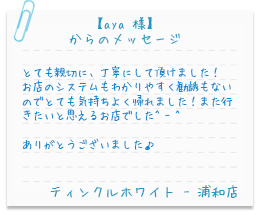 【aya 様】
からのメッセージ
とても親切に、丁寧にして頂けました！
お店のシステムもわかりやすく勧誘もない
のでとても気持ちよく帰れました！また行
きたいと思えるお店でした^-^
ありがとうございました♪
ティンクルホワイト - 浦和店